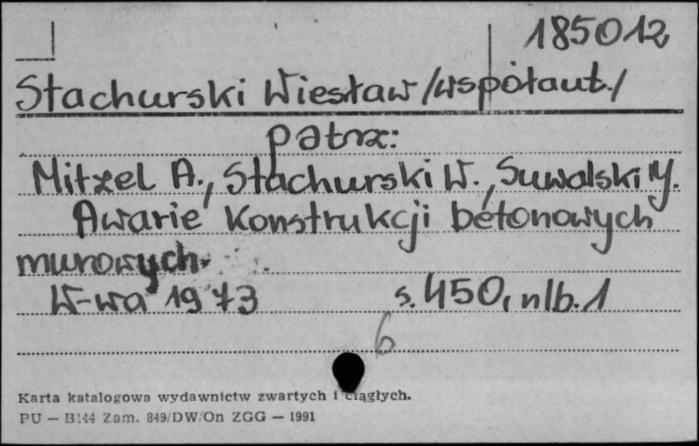 185012
Stachurski Wiesław /współaut./
patrz:
Mitzel A., Stachurski W., Suwalski J.
Awarie konstrukcji betonowych
murowych.
W-wa 1973 s. 450, nlb. 1
6
Karta katalogowa wydawnictw zwartych i ciągłych.
PU — B144 Zam. 849/DW/On ZGG — 1991